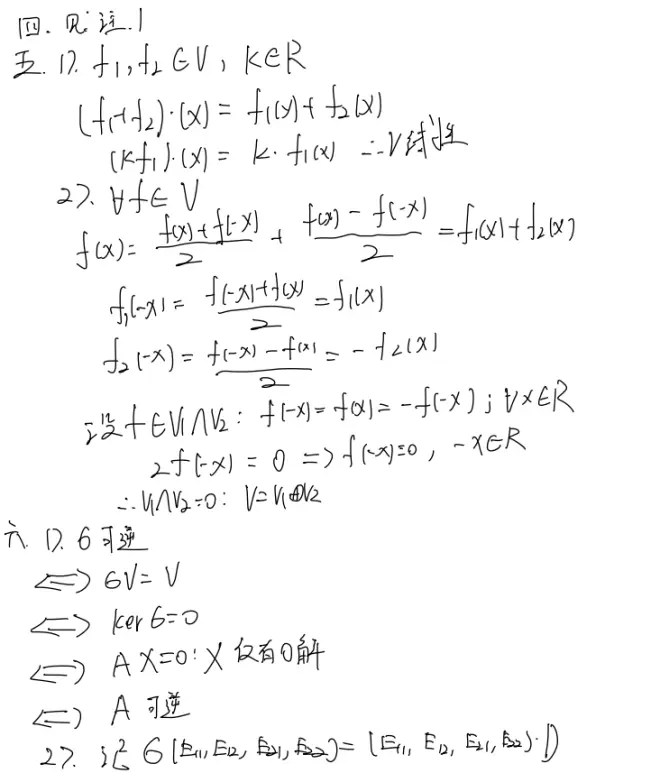 四. 见注.1
五. 1). f₁,f₂∈V, k∈R
(f₁+f₂)·(x) = f₁(x)+f₂(x)
(kf₁)·(x) = k·f₁(x) ∴V线性
2). ∀f∈V
f(x)= (f(x)+f(-x))/2 + (f(x)-f(-x))/2 = f₁(x)+f₂(x)
f₁(-x) = (f(-x)+f(x))/2 = f₁(x)
f₂(-x) = (f(-x)-f(x))/2 = -f₂(x)
设f∈V₁∩V₂: f(-x)=f(x)=-f(-x); ∀x∈R
2f(-x) = 0 => f(-x)=0, -x∈R
∴V₁∩V₂=0: V=V₁⊕V₂
六. 1). σ可逆
<=> σV=V
<=> ker σ=0
<=> AX=0: X仅有0解
<=> A可逆
2). 记 σ(E₁₁, E₁₂, E₂₁, E₂₂)=(E₁₁, E₁₂, E₂₁, E₂₂)·D